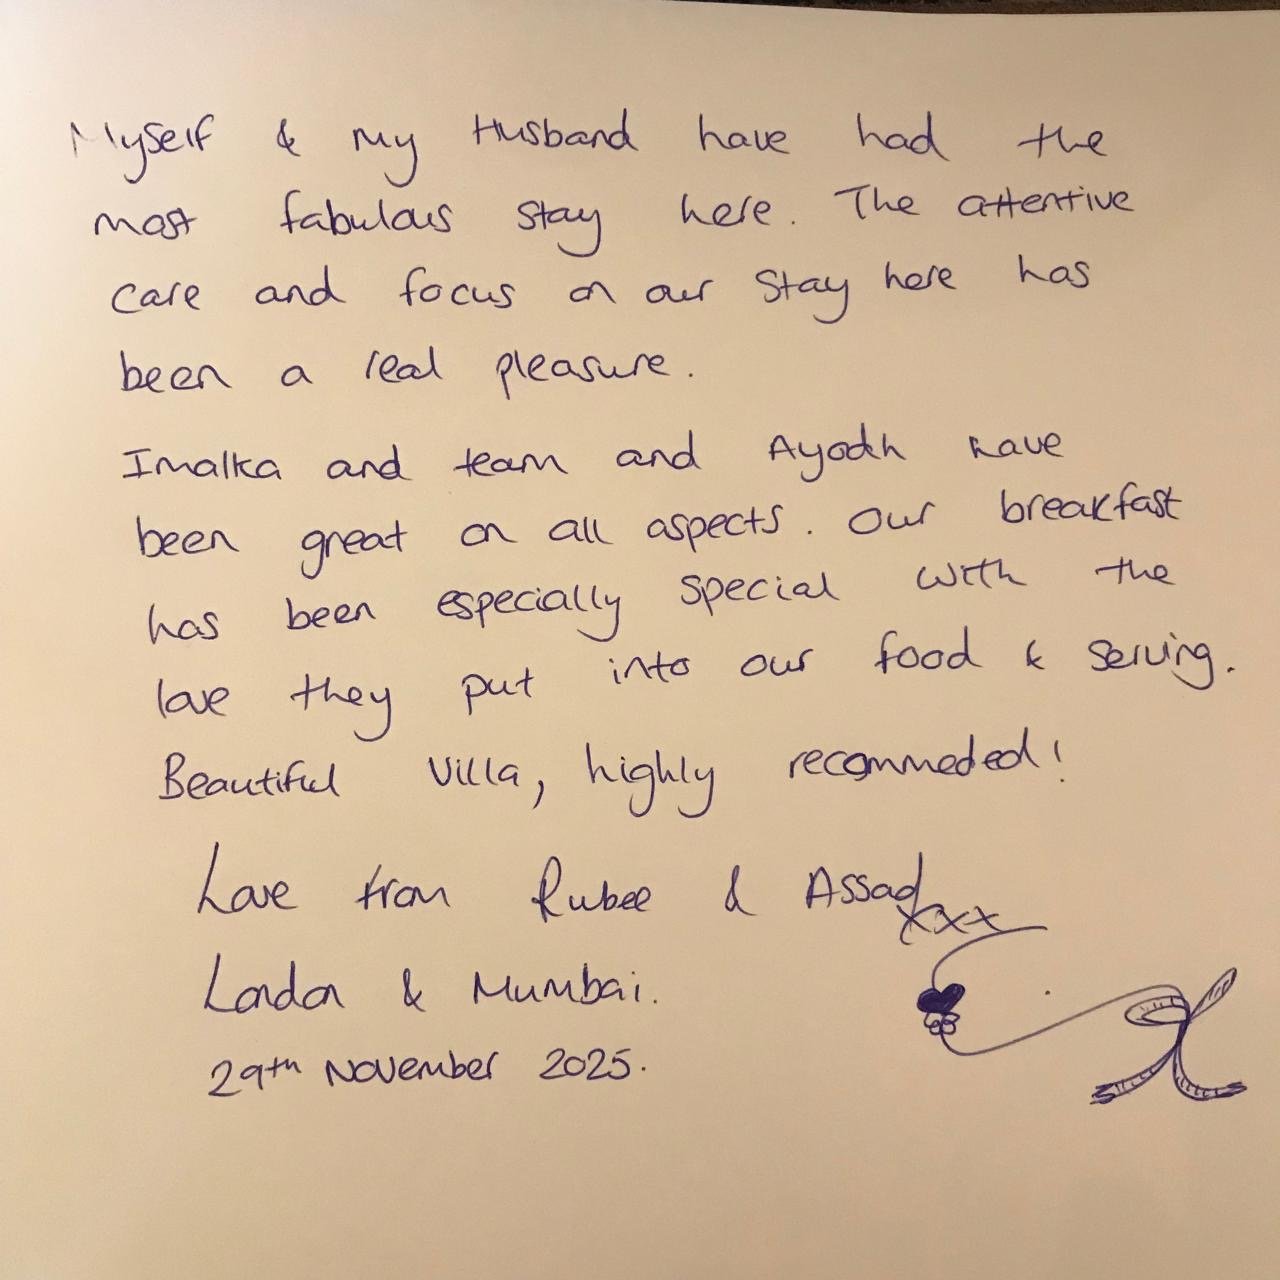 Myself & my Husband have had the
most fabulous stay here. The attentive
care and focus on our stay here has
been a real pleasure.
Imalka and team and Ayodh have
been great on all aspects. Our breakfast
has been especially special with the
love they put into our food & serving.
Beautiful Villa, highly recommeded!
Love from Rubee & Assad
xxx
London & Mumbai.
29th November 2025.